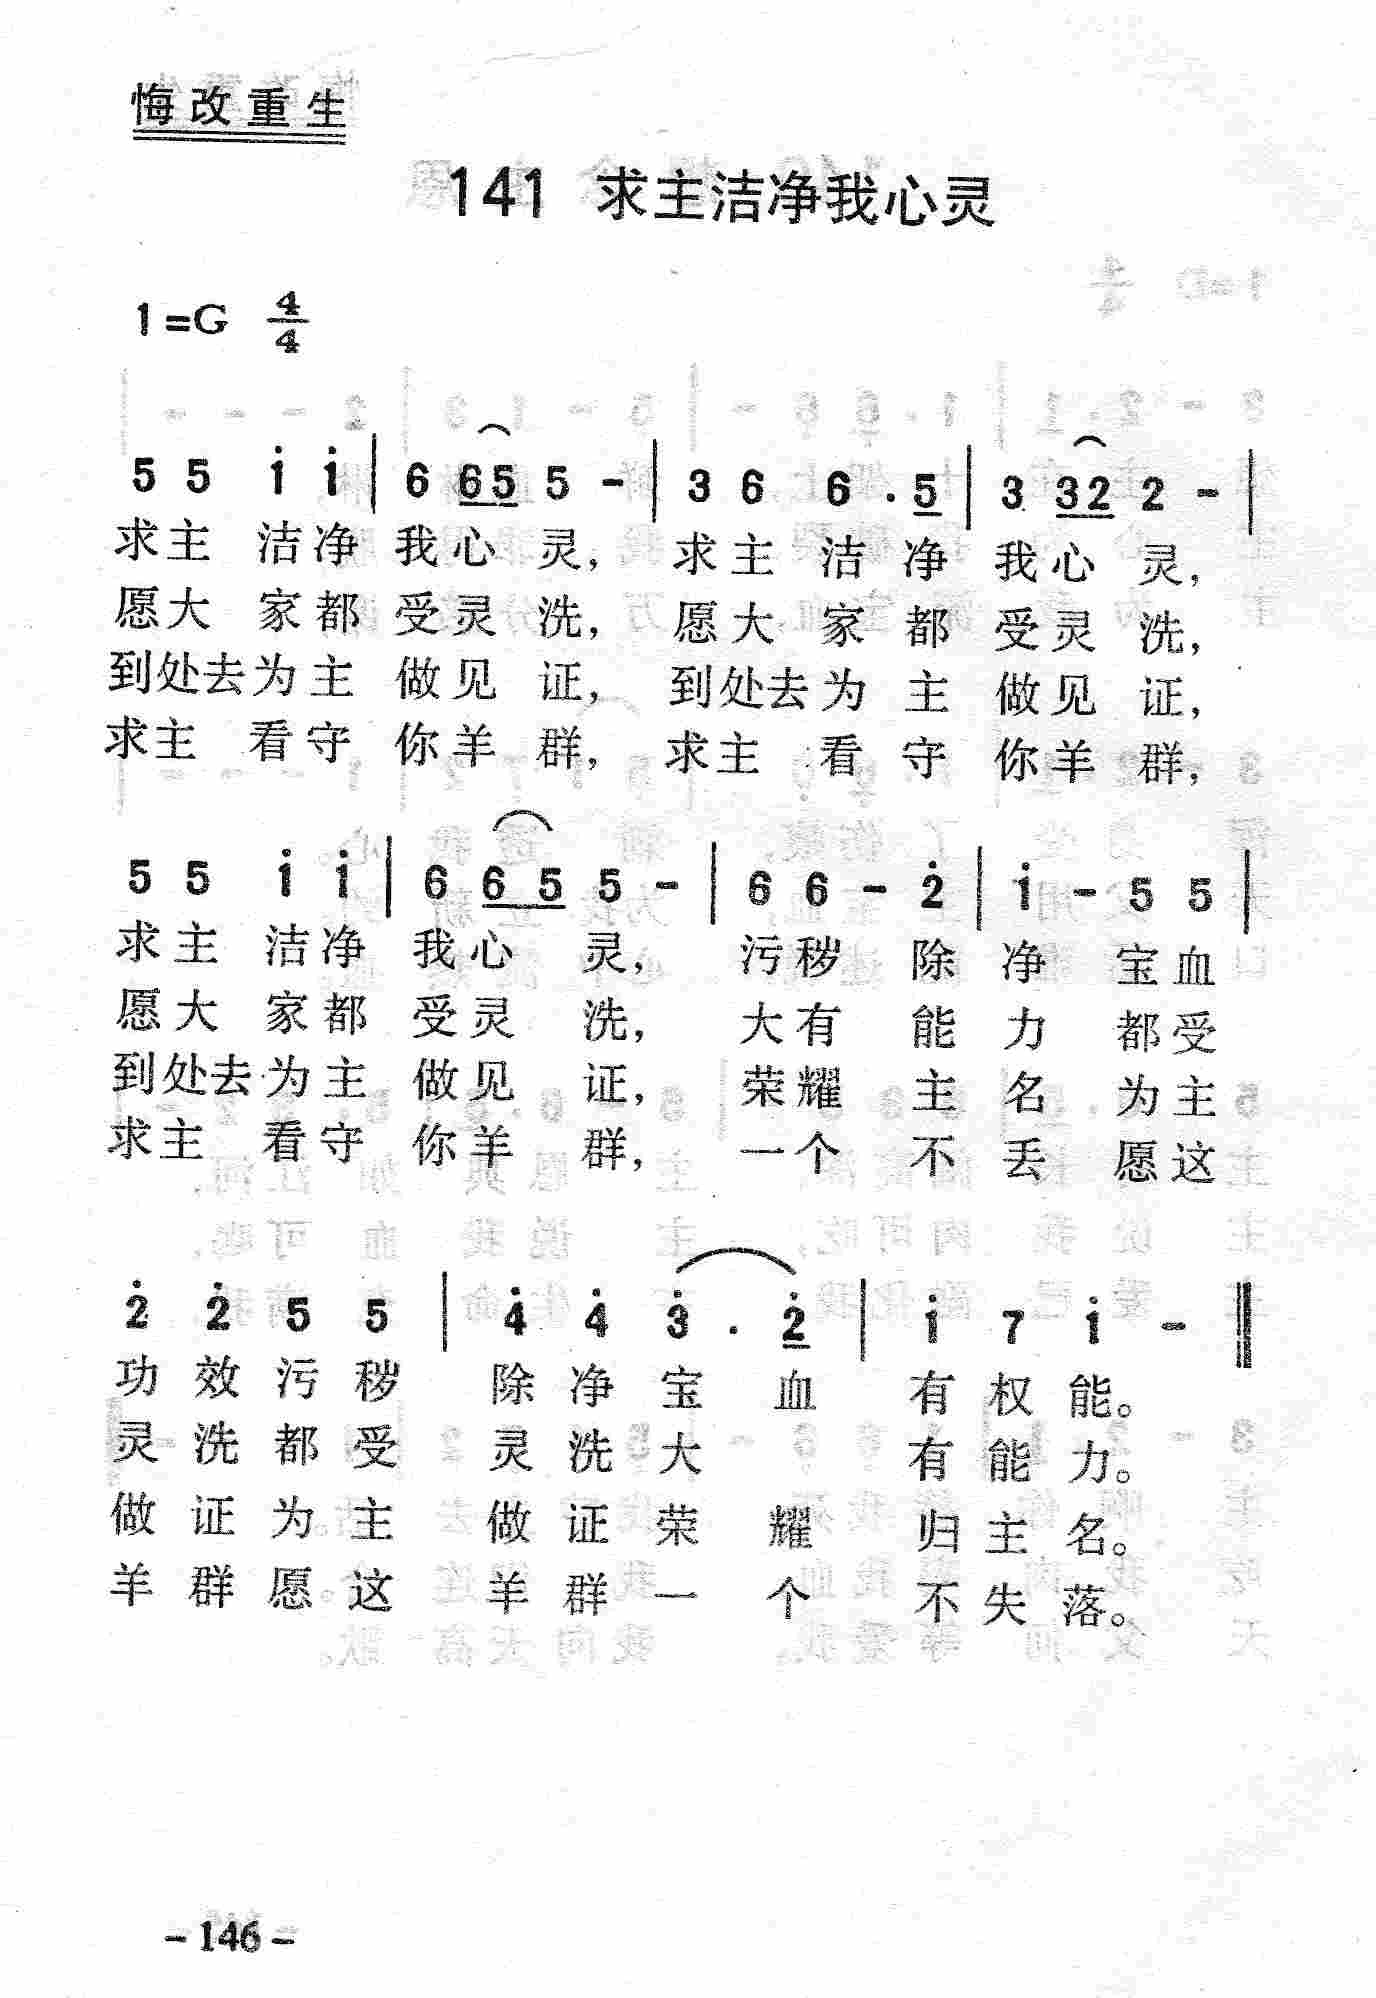 悔改重生
141 求主洁净我心灵
1=G 4/4
5 5 i i | 6 65 5 - | 3 6 6 . 5 | 3 32 2 - |
求主 洁净 我心 灵, 求主 洁 净 我心 灵,
愿大 家都 受灵 洗, 愿大 家 都 受灵 洗,
到处去为主 做见 证, 到处去为 主 做见 证,
求主 看守 你羊 群, 求主 看 守 你羊 群,
5 5 i i | 6 65 5 - | 6 6 - 2̇ | i - 5 5 |
求主 洁净 我心 灵, 污秽 除 净 宝血
愿大 家都 受灵 洗, 大有 能 力 都受
到处去为主 做见 证, 荣耀 主 名 为主
求主 看守 你羊 群, 一个 不 丢 愿这
2̇ 2̇ 5 5 | 4̇ 4̇ 3̇ . 2̇ | i 7 i - ‖
功效污秽 除净宝 血 有权能。
灵洗都受 灵洗大 有能力。
做证为主 做证荣 耀 归主名。
羊群愿这 羊群一 个 不失落。
-146-